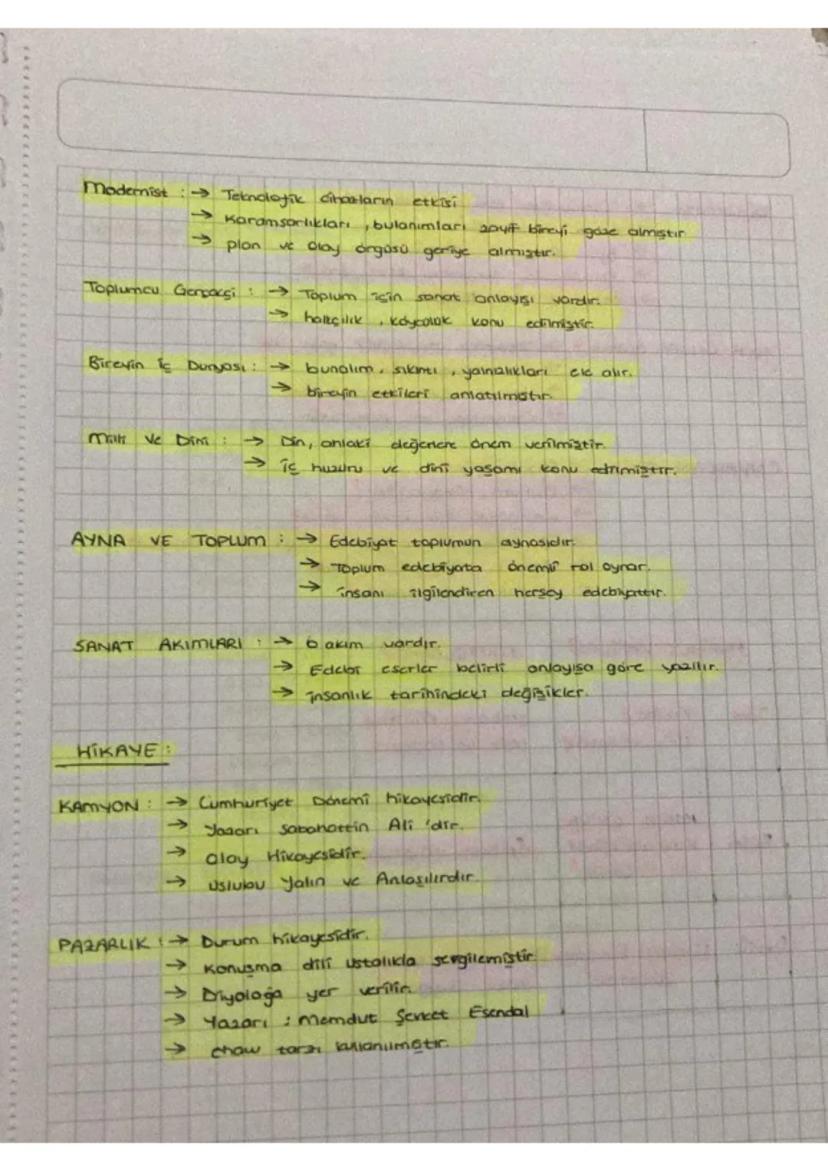 Modernist : → Teknolojik cihazların etkisi
→ Karamsarlıkları , bulanımları zayıf bireyi göze almıştır
→ plan ve olay örgüsü geriye almıştır.
Toplumcu Gerçekçi : → Toplum için sanat anlayışı vardır.
→ halkçılık , köycülük konu edilmiştir.
Bireyin İç Dünyası : → bunalım , sıkıntı , yalnızlıkları ele alır.
→ bireyin etkileri anlatılmıştır.
Milli ve Dini : → Din, ahlaki değerlere önem verilmiştir.
→ iç huzuru ve dini yaşamı konu edinmiştir.
AYNA VE TOPLUM : → Edebiyat toplumun aynasıdır.
→ Toplum edebiyata önemli rol oynar.
→ insanı ilgilendiren herşey edebiyattır.
SANAT AKIMLARI : → 6 akım vardır.
→ Edebi eserler belirli anlayışa göre yazılır.
→ insanlık tarihindeki değişikler.
HİKAYE :
KAMYON : → Cumhuriyet Dönemi hikayesidir.
→ Yazarı Sabahattin Ali 'dir.
→ Olay Hikayesidir.
→ Uslubu Yalın ve Anlaşılırdır.
PAZARLIK : → Durum hikayesidir.
→ Konuşma dili ustalıkla sergilemiştir.
→ Diyaloğa yer verilir.
→ Yazarı : Memdut Şevket Esendal
→ chaw tarzı kullanılmıştır.